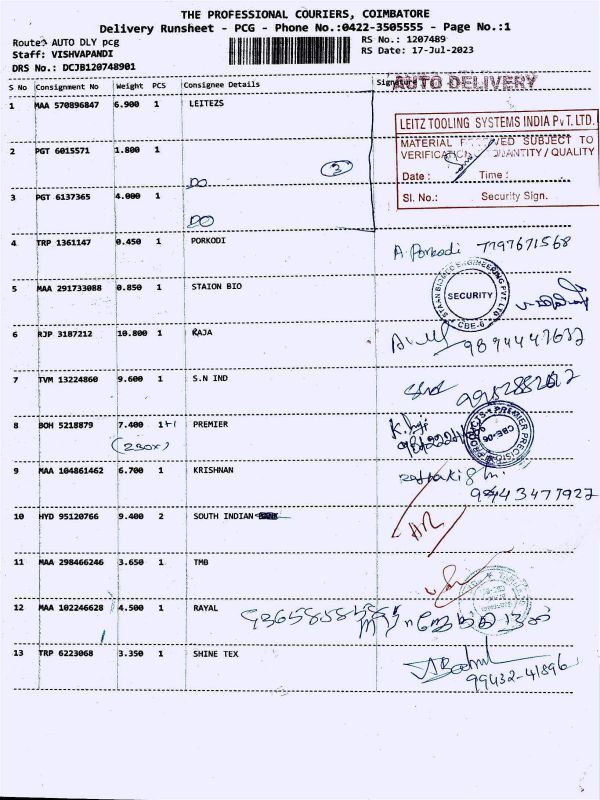 THE PROFESSIONAL COURIERS, COIMBATORE
Delivery Runsheet - PCG - Phone No.:0422-3505555 - Page No.:1
Route: AUTO DLY pcg
RS No.: 1207489
Staff: VISHVAPANDI
RS Date: 17-Jul-2023
DRS No.: DCJB120748901
S No Consignment No Weight PCS Consignee Details Signature
AUTO DELIVERY
1 MAA 570896847 6.900 1 LEITEZS
LEITZ TOOLING SYSTEMS INDIA PVT. LTD.
MATERIAL SUBJECT TO
VERIFICATION QUANTITY / QUALITY
Date : Time :
Sl. No.: Security Sign.
2 PGT 6015571 1.800 1
3
DO
3 PGT 6137365 4.000 1
DO
4 TRP 1361147 0.450 1 PORKODI A. Porkodi 7797671568
5 MAA 291733088 0.850 1 STAION BIO
STAAN BIOMED ENGINEERING PVT LTD
SECURITY
CBE-6
6 RJP 3187212 10.800 1 RAJA
7 TVM 13224860 9.600 1 S.N IND
8 BOH 5218879 7.400 1+1 PREMIER
(2BOX)
PREMIER PRECISION PRODUCTS
CBE-06
9 MAA 104861462 6.700 1 KRISHNAN
10 HYD 95120766 9.400 2 SOUTH INDIAN
11 MAA 298466246 3.650 1 TMB
12 MAA 102246628 4.500 1 RAYAL
13 TRP 6223068 3.350 1 SHINE TEX
99432-41896